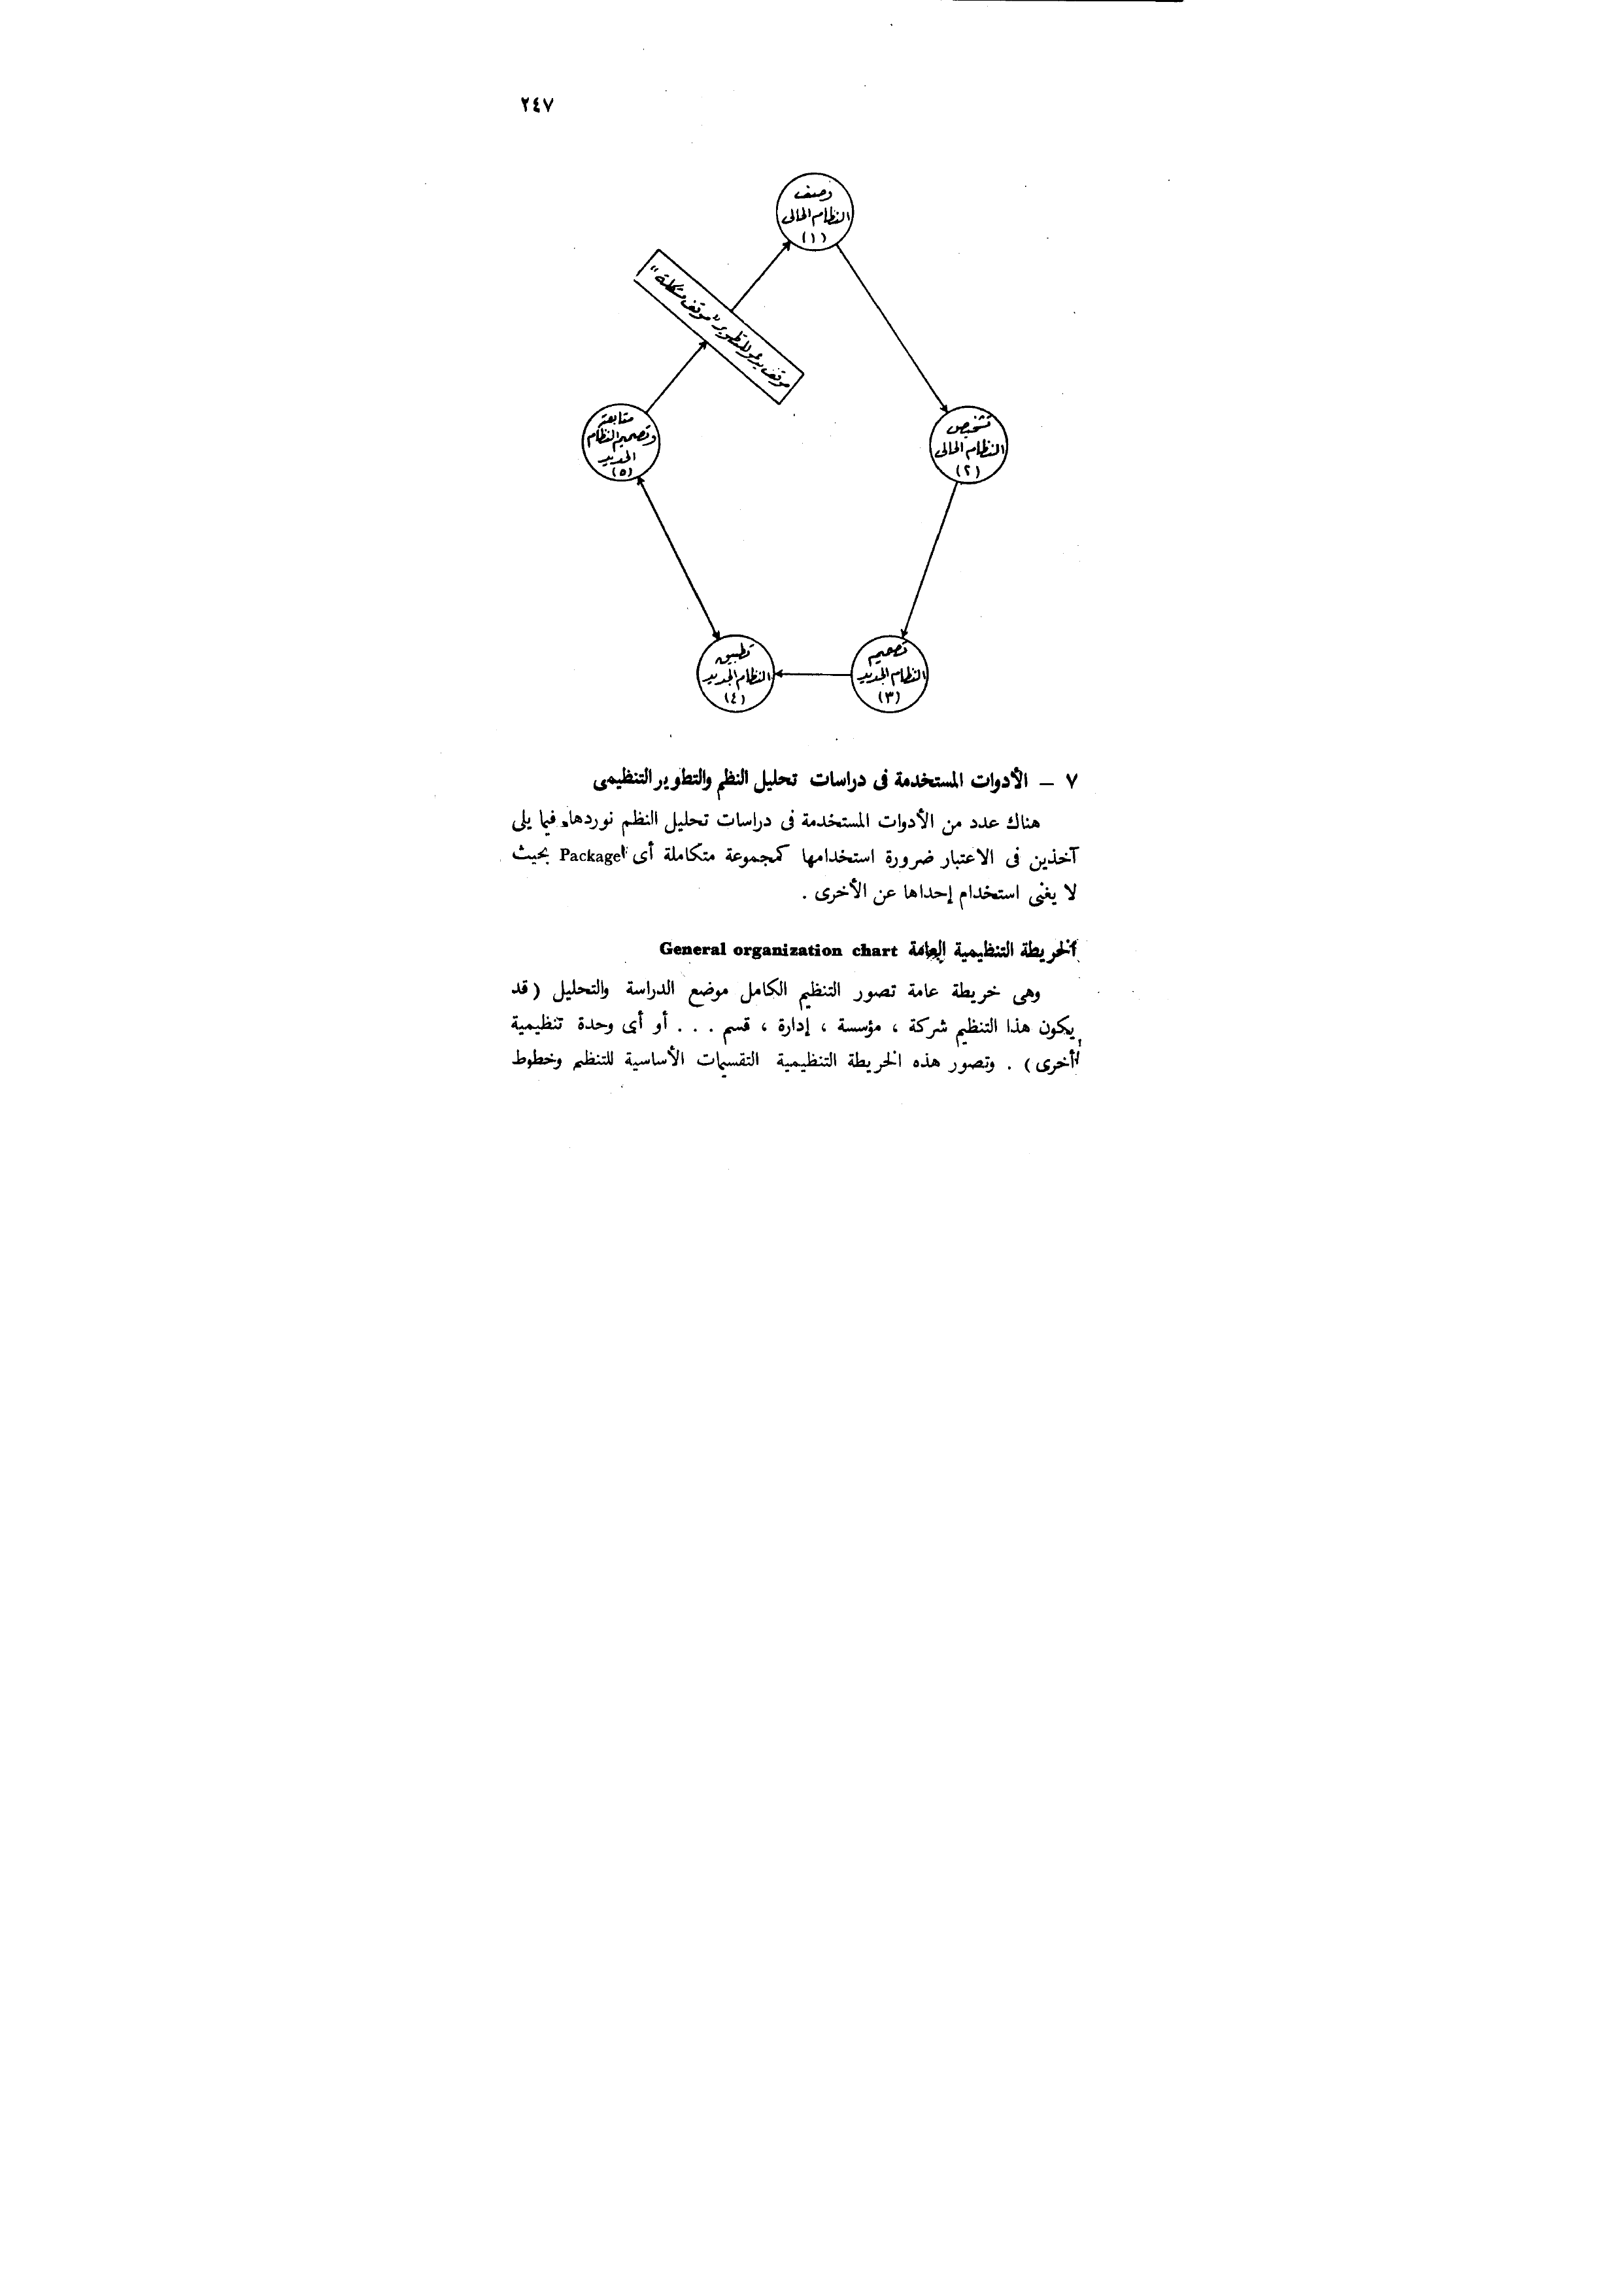 ٢٤٧
وصف
النظام الحالى
(١)
موقف يدعو للتطوير "موقف مشكلة"
تشخيص
النظام الحالى
(٢)
متابعة
وتصميم النظام
الجديد
(٥)
تصميم
النظام الجديد
(٣)
تطبيق
النظام الجديد
(٤)
٧ – الأدوات المستخدمة فى دراسات تحليل النظم والتطوير التنظيمى
هناك عدد من الأدوات المستخدمة فى دراسات تحليل النظم نوردها فيما يلى
آخذين فى الاعتبار ضرورة استخدامها كمجموعة متكاملة أى Package بحيث
لا يغنى استخدام إحداها عن الأخرى .
الخريطة التنظيمية العامة General organization chart
وهى خريطة عامة تصور التنظيم الكامل موضع الدراسة والتحليل ( قد
يكون هذا التنظيم شركة ، مؤسسة ، إدارة ، قسم . . . أو أى وحدة تنظيمية
أخرى ) . وتصور هذه الخريطة التنظيمية التقسيمات الأساسية للتنظيم وخطوط